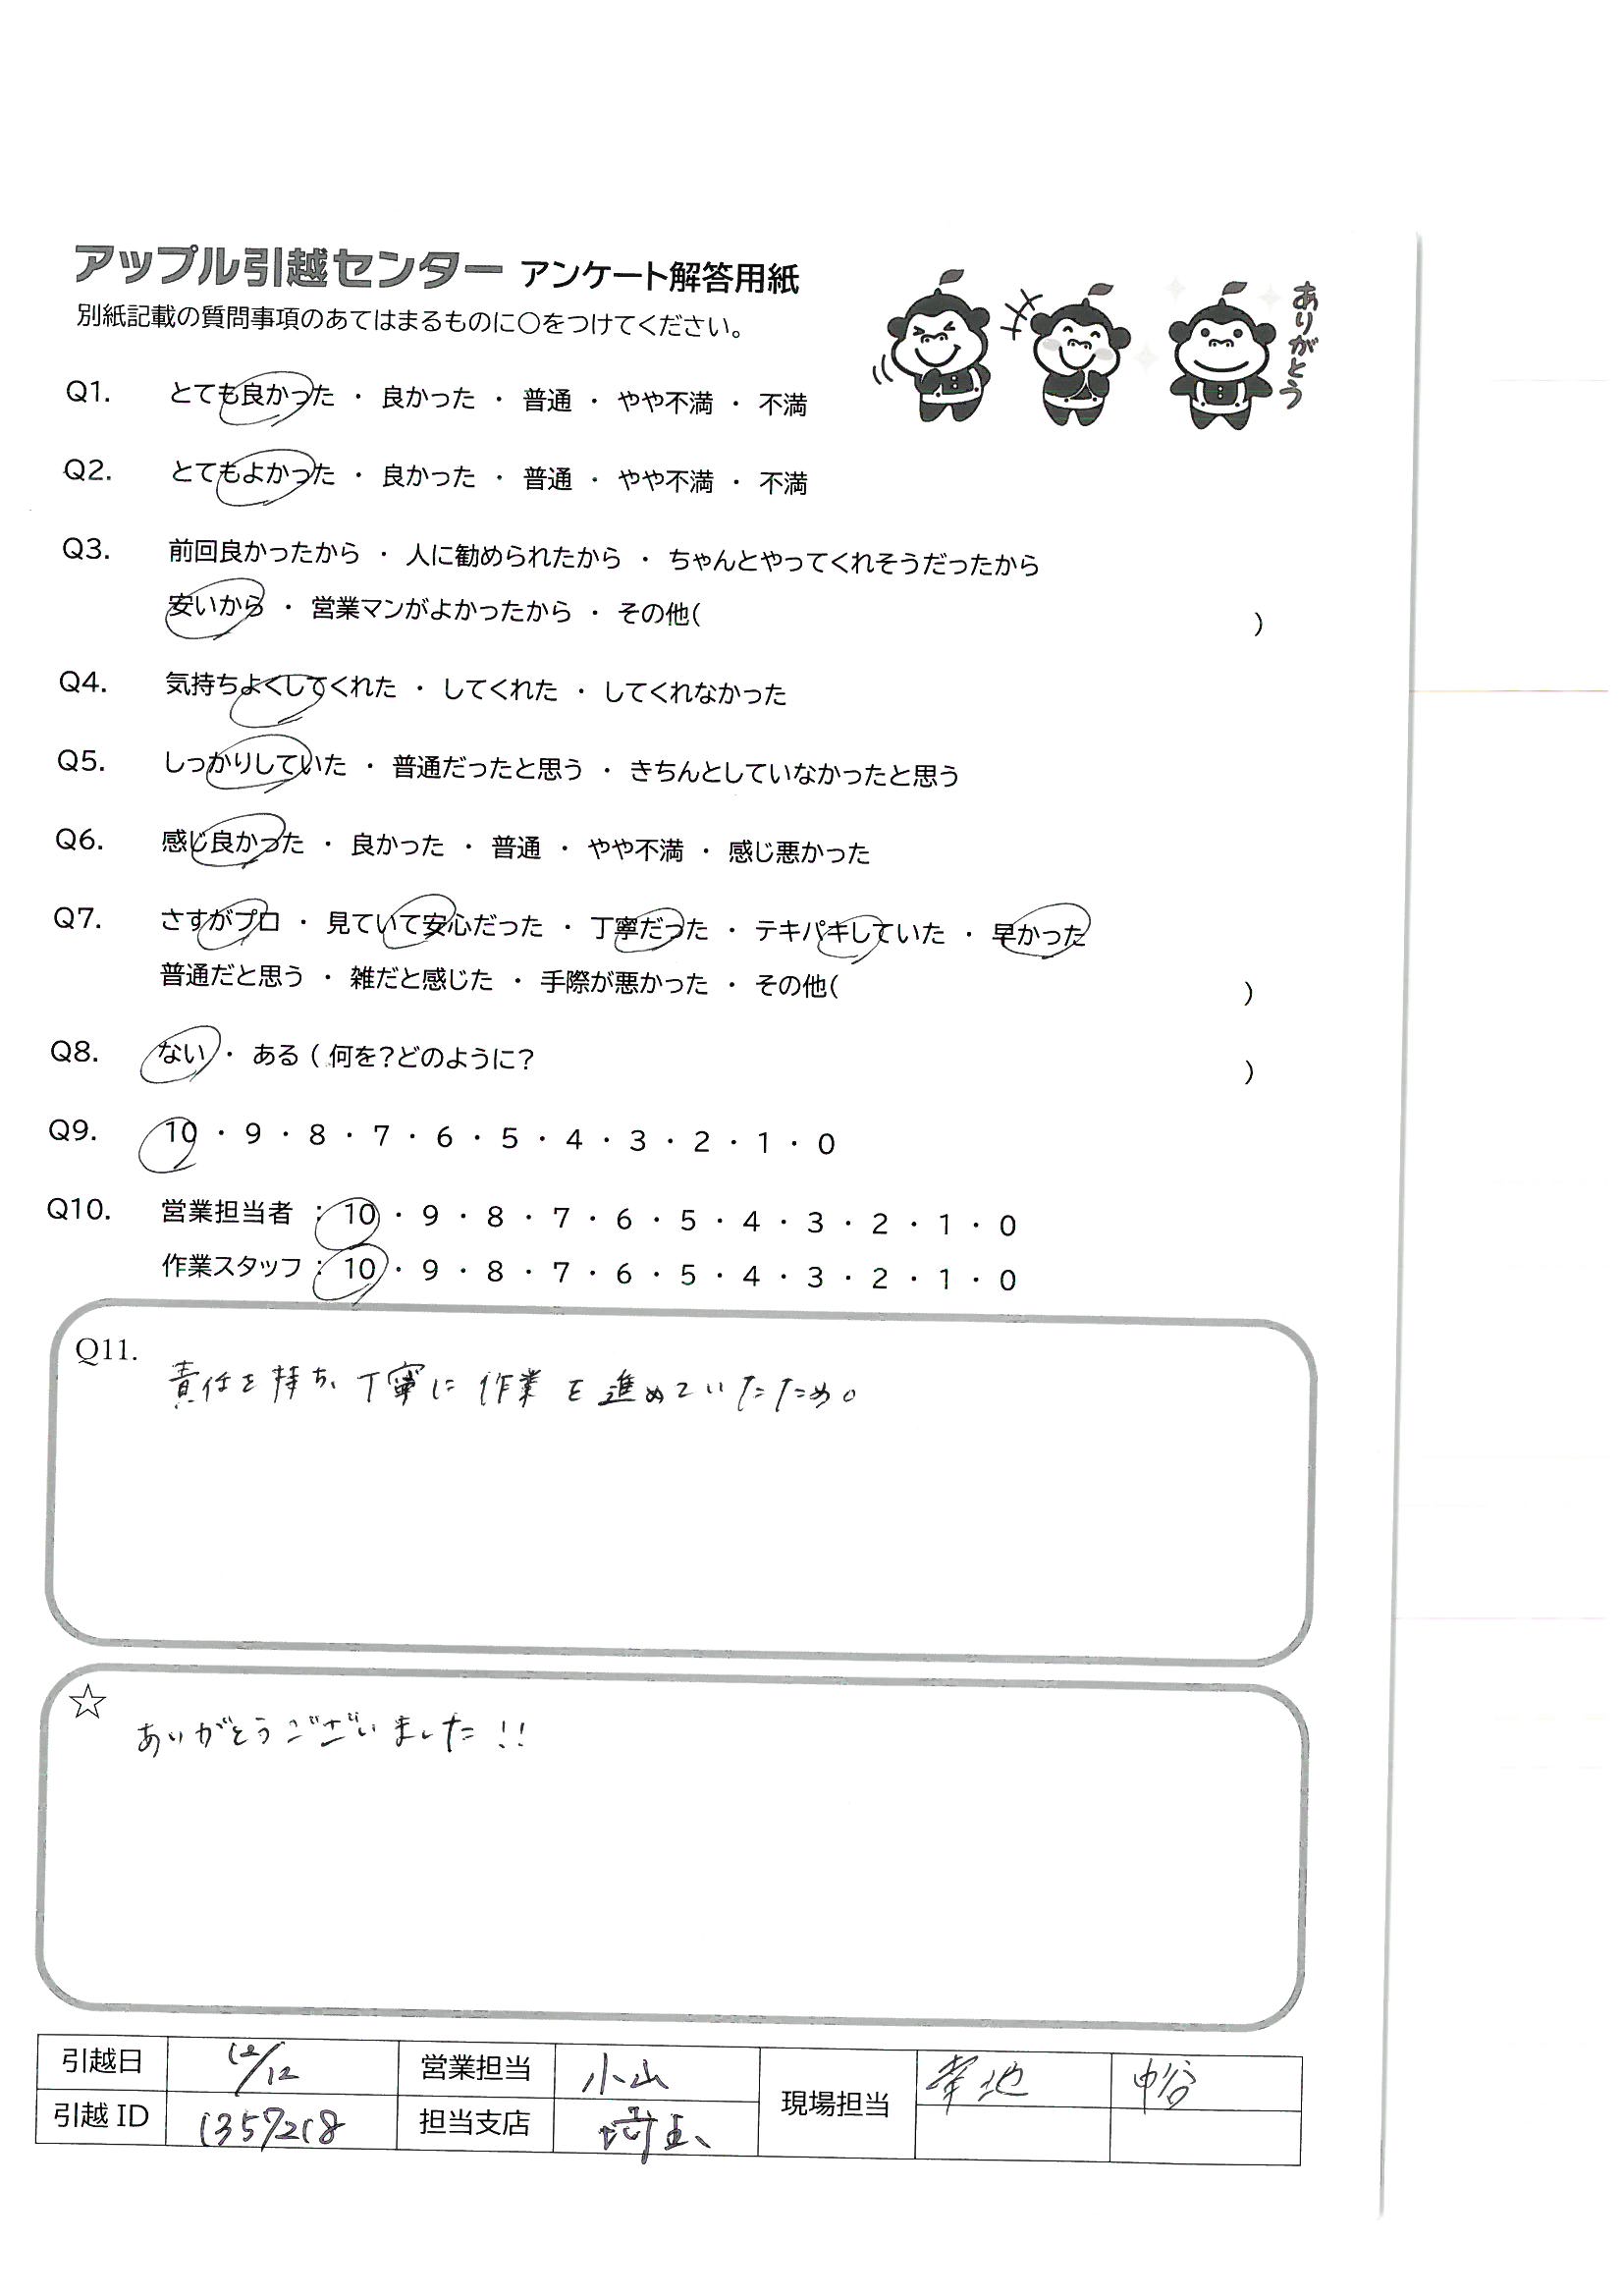 アップル引越センター アンケート解答用紙
別紙記載の質問事項のあてはまるものに○をつけてください。
ありがとう
Q1. とても良かった ・ 良かった ・ 普通 ・ やや不満 ・ 不満
Q2. とてもよかった ・ 良かった ・ 普通 ・ やや不満 ・ 不満
Q3. 前回良かったから ・ 人に勧められたから ・ ちゃんとやってくれそうだったから
安いから ・ 営業マンがよかったから ・ その他( )
Q4. 気持ちよくしてくれた ・ してくれた ・ してくれなかった
Q5. しっかりしていた ・ 普通だったと思う ・ きちんとしていなかったと思う
Q6. 感じ良かった ・ 良かった ・ 普通 ・ やや不満 ・ 感じ悪かった
Q7. さすがプロ ・ 見ていて安心だった ・ 丁寧だった ・ テキパキしていた ・ 早かった
普通だと思う ・ 雑だと感じた ・ 手際が悪かった ・ その他( )
Q8. ない ・ ある ( 何を?どのように? )
Q9. 10 ・ 9 ・ 8 ・ 7 ・ 6 ・ 5 ・ 4 ・ 3 ・ 2 ・ 1 ・ 0
Q10. 営業担当者 : 10 ・ 9 ・ 8 ・ 7 ・ 6 ・ 5 ・ 4 ・ 3 ・ 2 ・ 1 ・ 0
作業スタッフ : 10 ・ 9 ・ 8 ・ 7 ・ 6 ・ 5 ・ 4 ・ 3 ・ 2 ・ 1 ・ 0
Q11.
責任を持ち、丁寧に作業を進めていたため。
☆
ありがとうございました!!
引越日 12/12 営業担当 小山 現場担当 幸地 中谷
引越 ID 1357218 担当支店 埼玉